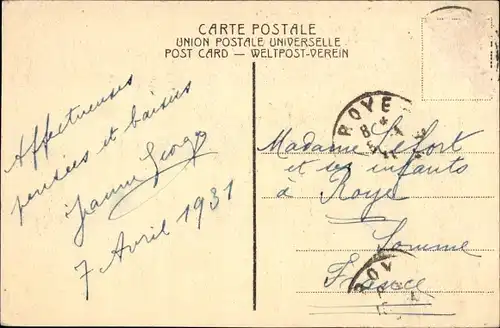 CARTE POSTALE
UNION POSTALE UNIVERSELLE
POST CARD — WELTPOST-VEREIN
Affectueuses
pensées et baisers
7 Avril 1931
ROYE
Madame Lefort
et ses enfants
à Roye
Somme
France
ROY